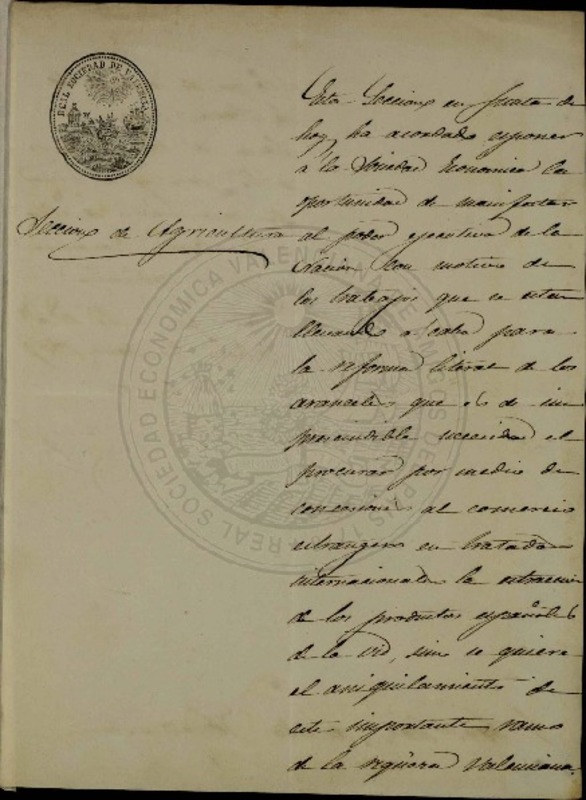 REAL SOCIEDAD DE VALENCIA
Seccion de Agricultura
Esta Seccion en junta de
hoy, ha acordado esponer
á la Sociedad Economica la
oportunidad de manifestar
al poder ejecutivo de la
Nacion con motivo de
los trabajos que se estan
llevando a cabo para
la reforma liberal de los
aranceles que es de im
prescindible necesidad el
procurar por medio de
concesiones al comercio
estrangero en tratados
internacionales la estraccion
de los productos españoles
de la vid, sino se quiere
el aniquilamiento de
este importante ramo
de la riqueza Valenciana.
REAL SOCIEDAD ECONOMICA VALENCIANA DE AMIGOS DEL PAIS